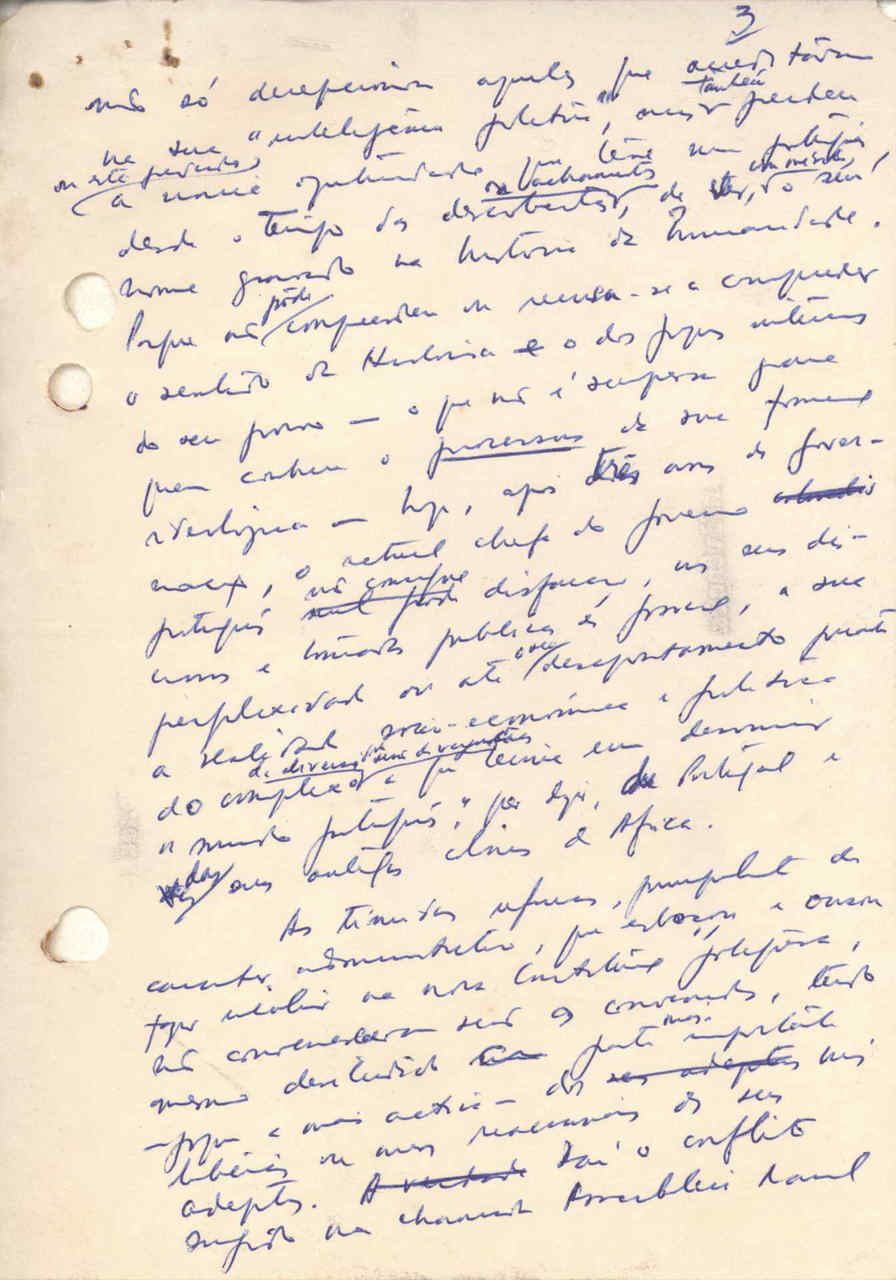 3
não só decepcionou aqueles que acreditavam
na sua "inteligência política", mas também perdeu
a única oportunidade que teve um português,
ou este pedido
desde o tempo das descobertas, de ter, o seu
ou achamentos
com mérito,
nome gravado na história da Humanidade.
Porque não pôde compreender ou recusa-se a compreender
o sentido da História e o dos jogos internos
do seu povo — o que não é surpresa para
quem conhece o processus da sua formação
ideológica — hoje, após três anos de gover-
nação, o actual chefe do governo
português não consegue disfarçar, nos seus dis-
cursos e tomadas públicas de posição, a sua
perplexidade ou até o seu desapontamento perante
a realidade socio-económica e política
do complexo que teima em denominar
o mundo português", quer dizer, de Portugal e
das suas antigas colónias de África.
As tímidas reformas, principalmente de
carácter administrativo, que esboçou e ousou
fazer incluir na nova Constituição portuguesa,
não convenceram senão os convencidos, tendo
mesmo desiludido parte mais importante
— porque a mais activa — dos seus adeptos mais
liberais ou mais reaccionários dos seus
adeptos. A verdade Daí o conflito
surgido na chamada Assembleia Nacional